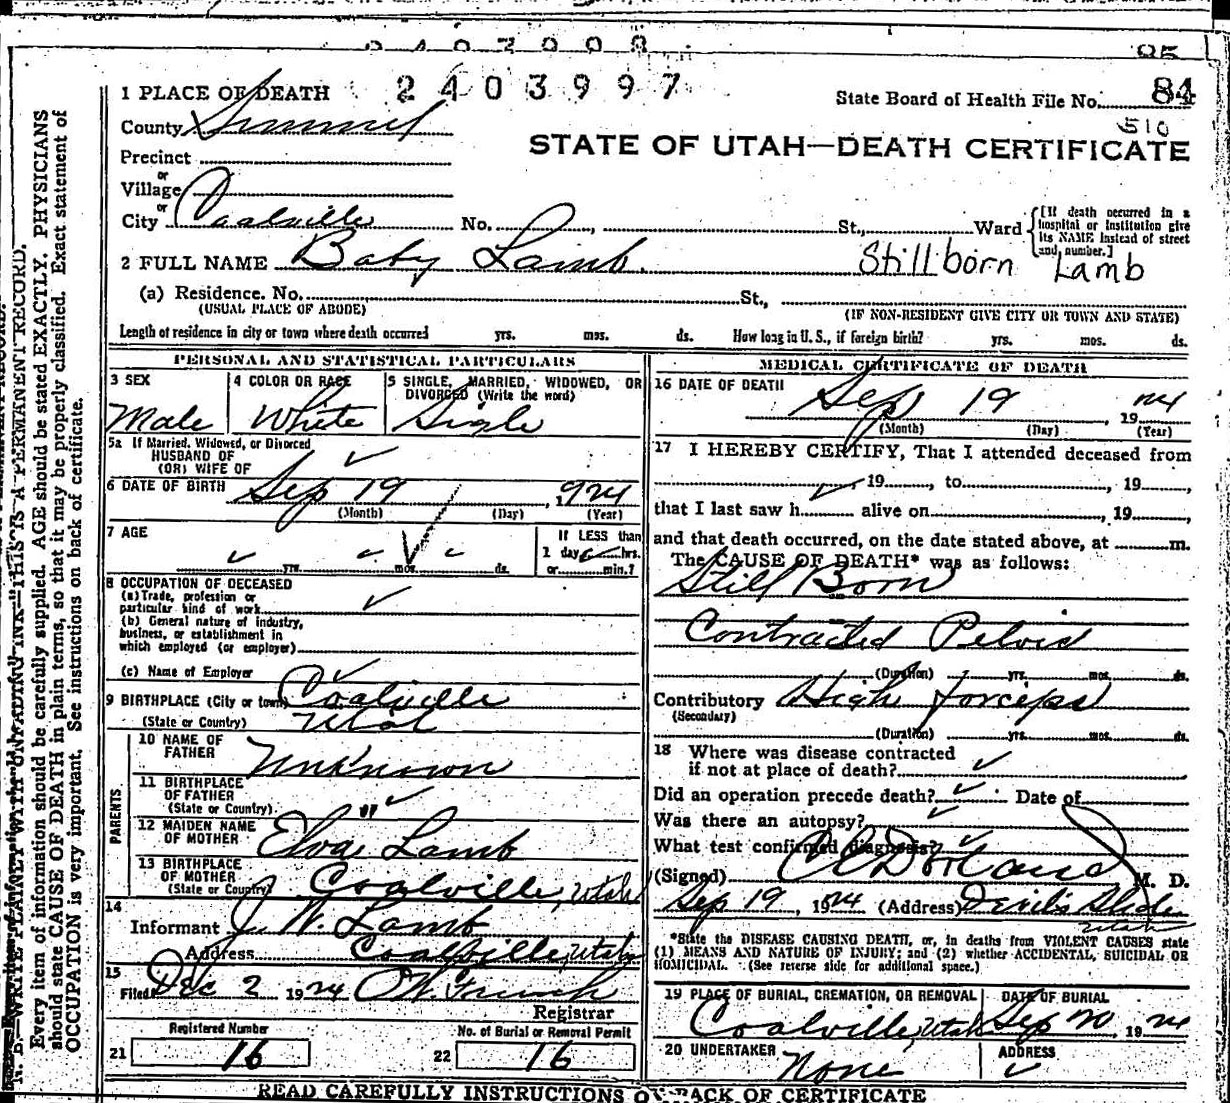 2403997
85
84
1 PLACE OF DEATH
State Board of Health File No.
510
County Summit
STATE OF UTAH—DEATH CERTIFICATE
Precinct
or
Village
or
City Coalville No. , St., Ward
[If death occurred in a hospital or institution give its NAME instead of street and number.]
2 FULL NAME Baby Lamb.
Stillborn Lamb
(a) Residence. No. St.,
(USUAL PLACE OF ABODE) (IF NON-RESIDENT GIVE CITY OR TOWN AND STATE)
Length of residence in city or town where death occurred yrs. mos. ds. How long in U. S., if foreign birth? yrs. mos. ds.
PERSONAL AND STATISTICAL PARTICULARS
3 SEX
Male
4 COLOR OR RACE
White
5 SINGLE, MARRIED, WIDOWED, OR DIVORCED (Write the word)
Sigle
5a If Married, Widowed, or Divorced
HUSBAND OF
(OR) WIFE OF
6 DATE OF BIRTH Sep 19 , 1924
(Month) (Day) (Year)
7 AGE
yrs. mos. ds.
If LESS than
1 day hrs.
or min.?
8 OCCUPATION OF DECEASED
(a) Trade, profession or
particular kind of work
(b) General nature of industry,
business, or establishment in
which employed (or employer)
(c) Name of Employer
9 BIRTHPLACE (City or town) Coalville
(State or Country) Utah
PARENTS
10 NAME OF
FATHER Unknown
11 BIRTHPLACE
OF FATHER
(State or Country) "
12 MAIDEN NAME
OF MOTHER Elva Lamb
13 BIRTHPLACE
OF MOTHER
(State or Country) Coalville, Utah
14
Informant J. W. Lamb
Address Coalville, Utah
15
Filed Dec 2 1924
Registrar
Registered Number
21 16
No. of Burial or Removal Permit
22 16
MEDICAL CERTIFICATE OF DEATH
16 DATE OF DEATH
Sep 19 , 1924
(Month) (Day) (Year)
17 I HEREBY CERTIFY, That I attended deceased from
, 19 , to , 19 ,
that I last saw h alive on , 19 ,
and that death occurred, on the date stated above, at m.
The CAUSE OF DEATH* was as follows:
Still Born
Contracted Pelvis
(Duration) yrs. mos. ds.
Contributory High forceps
(Secondary)
(Duration) yrs. mos. ds.
18 Where was disease contracted
if not at place of death?
Did an operation precede death? Date of
Was there an autopsy?
What test confirmed diagnosis?
(Signed) M. D.
Sep 19, 1924 (Address) Devils Slide
Utah
*State the DISEASE CAUSING DEATH, or, in deaths from VIOLENT CAUSES state
(1) MEANS AND NATURE OF INJURY; and (2) whether ACCIDENTAL, SUICIDAL OR
HOMICIDAL. (See reverse side for additional space.)
19 PLACE OF BURIAL, CREMATION, OR REMOVAL
Coalville, Utah
DATE OF BURIAL
Sep 20 1924
20 UNDERTAKER
None
ADDRESS
READ CAREFULLY INSTRUCTIONS ON BACK OF CERTIFICATE
N. B.—WRITE PLAINLY WITH UNFADING INK—THIS IS A PERMANENT RECORD.
Every item of information should be carefully supplied. AGE should be stated EXACTLY. PHYSICIANS
should state CAUSE OF DEATH in plain terms, so that it may be properly classified. Exact statement of
OCCUPATION is very important. See instructions on back of certificate.